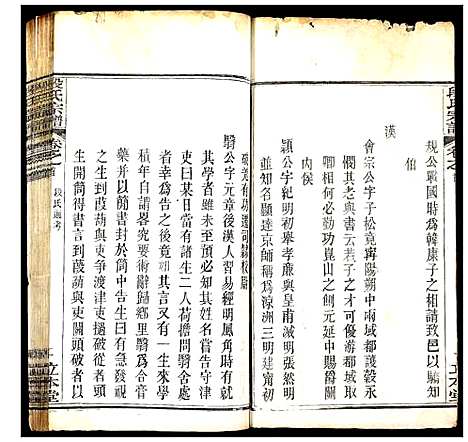 段氏宗譜
規公戰國時爲韓康子之相請致邑以驕知
伯
漢
會宗公字子松竟寧陽朔中兩域都護穀永
憫其老與書云若子之才可優游都城取
卿相何必勤功崑山之創元延進爵爲關
內侯
熲公字紀明初舉孝廉與皇甫滅明張然明
並知名顯達京師稱爲涼洲三明建甯初
破羌有功遷司隸校尉
翳公字元章後漢人習易經明風角時有就
其學者雖未至預必知其姓名嘗告守津
吏曰某日當有諸生二人荷擔問翳舍處
者幸爲告之後竟如其言又有一生來學
積年自謂畧究要術辭歸鄉里翳爲合膏
藥并以簡書封於筒中告生曰有急發視
之生到葭萌與吏爭渡津吏撾破從者頭
生開筒得書言到葭萌與吏鬭頭破者以
段氏宗譜
卷之首
段氏通考
一
立本堂